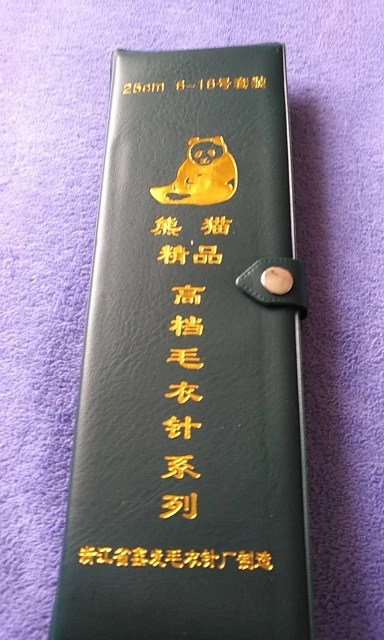 25cm 6-16号套装
熊 猫
精品
高档毛衣针系列
浙江省鑫发毛衣针厂制造